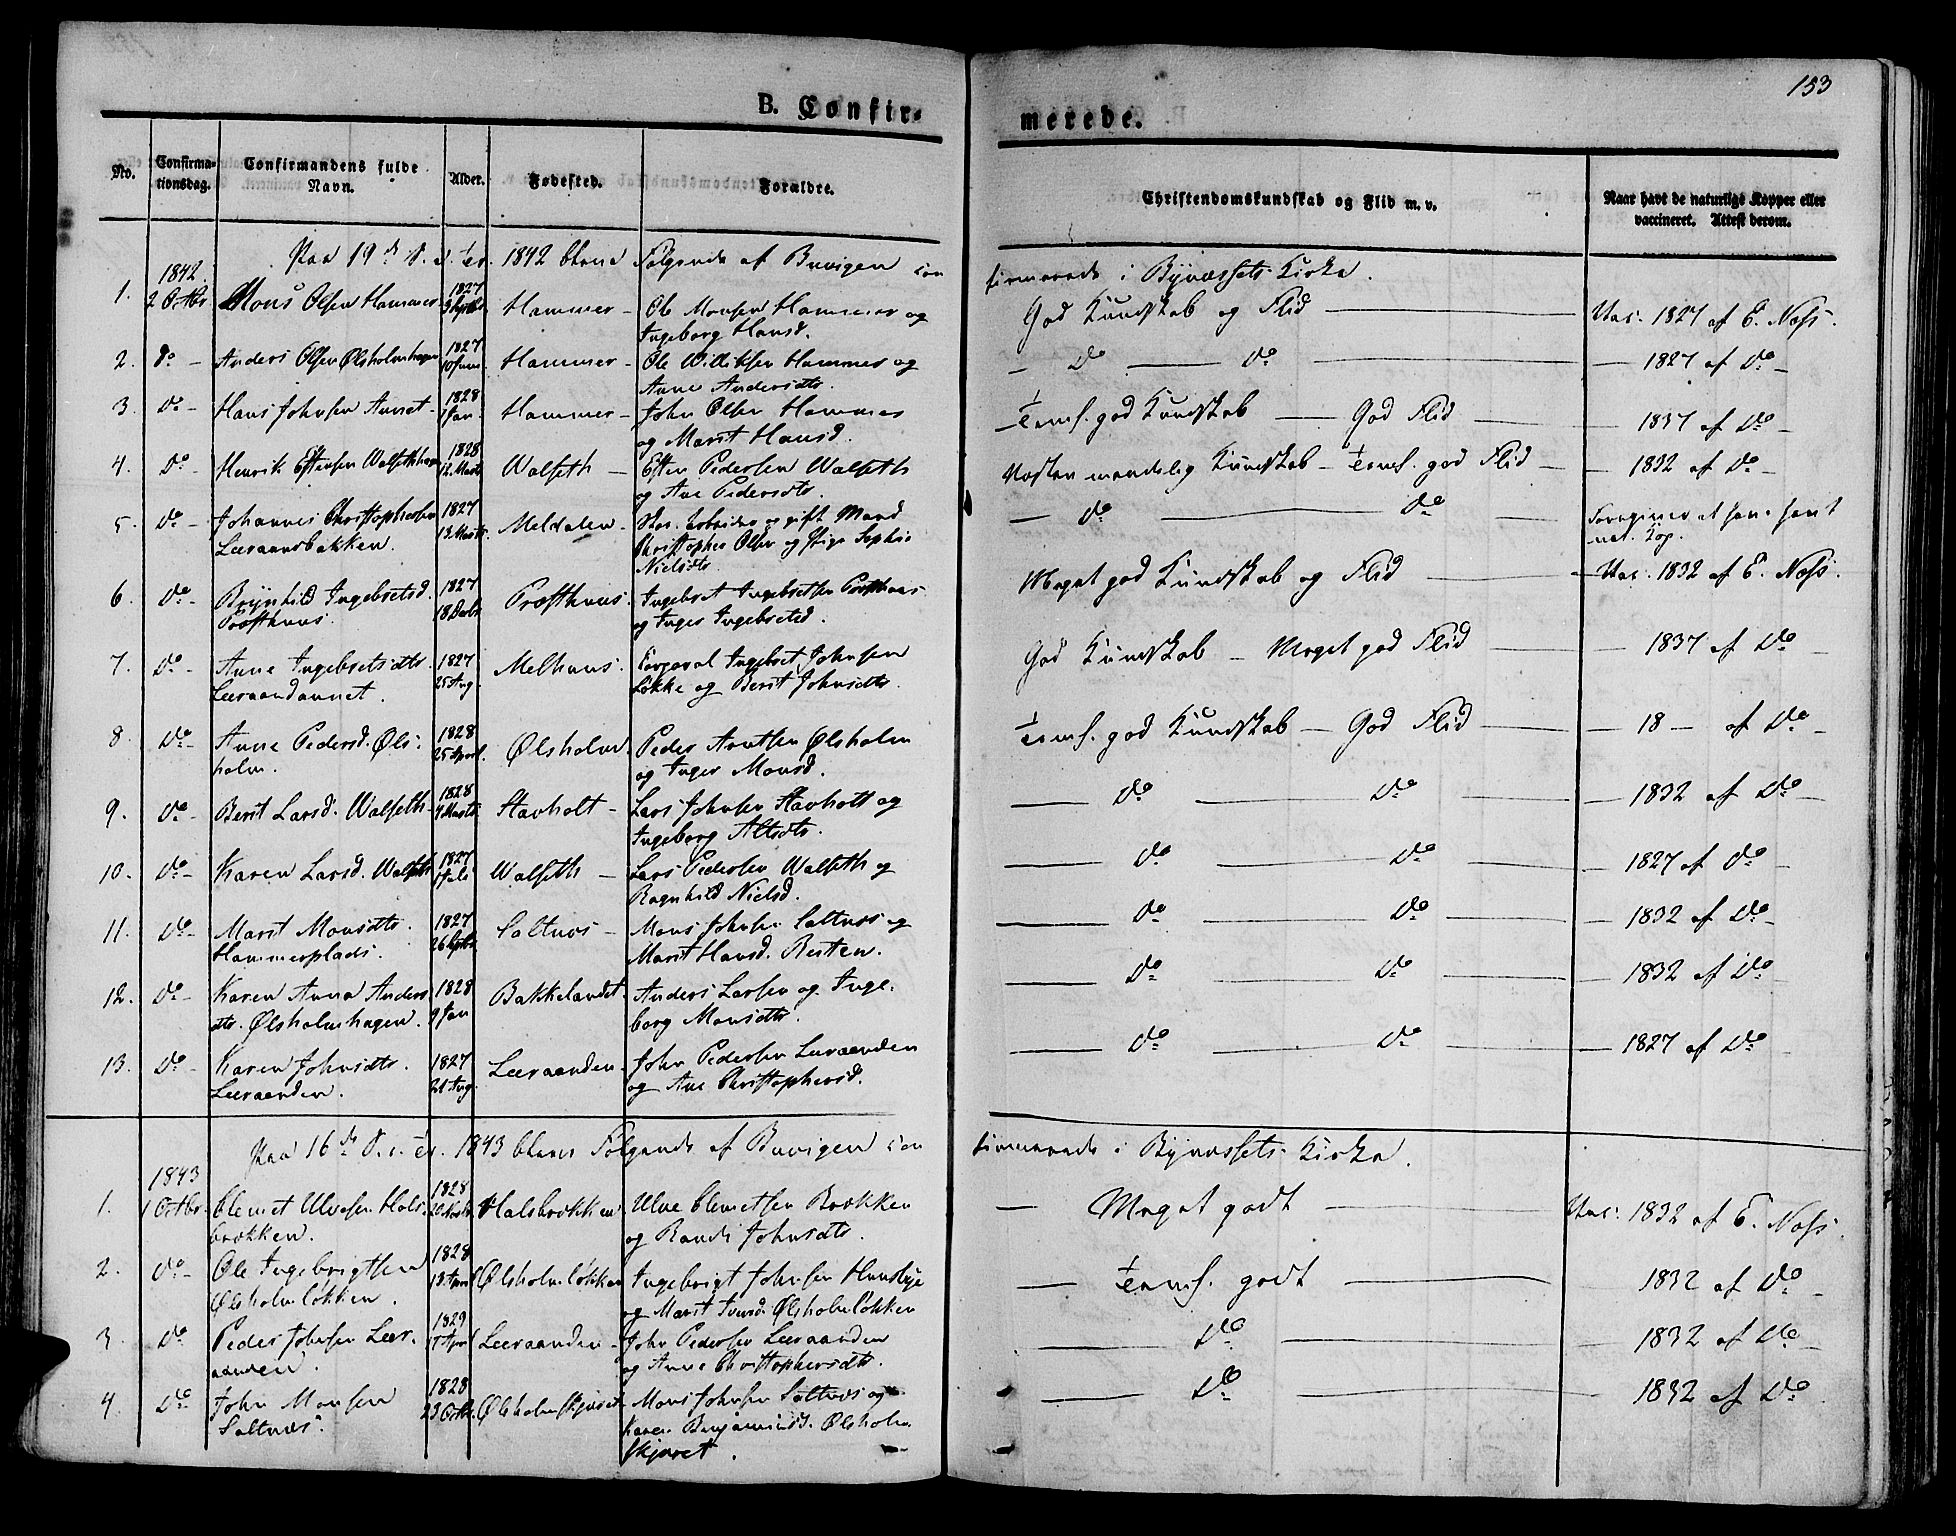 153
B. Confir-
merede.
No.
Confirma-
tionsdag.
Confirmandens fulde
Navn.
Alder.
Fødested.
Forældre.
Christendomskundskab og Flid m. v.
Naar havt de naturlige Kopper eller
vaccineret. Attest derom.
Paa 19de S. e. Tr. 1842 bleve Følgende af Buvigen con
firmerede i Bynæssets Kirke.
1. 1842 2 Octbr. Mons Olsen Hammer 1827 Hammer Ole Monsen Hammer og
Ingeborg Hansd.
God Kundskab og Flid Vac. 1827 af E. Næss.
2. Do Anders Olsen Ølsholmhagen 1827 10 Juni Hammer Ole Hammer og
Anne Andersdtr.
Do Do 1827 af Do
3. Do Hans Johnsen Aunet 1828 1 Jan. Hammer John Olsen Hammer
og Marit Hansd.
Temf. god Kundskab God Flid 1837 af Do
4. Do Henrik Estensen Walsethhagen 1828 12 Marts Walseth Esten Pedersen Walseth
og Ane Pedersdtr.
Nogle maadelig Kundskab Temf. god Flid 1832 af Do
5. Do Johannes Christophersen
Leeraansbakken. 1827 13 Marts Meldalen gift Mand
Christopher Olsen og Pige Sophie
Nielsdtr.
Do Do Foregiver at have havt
nat. Kop.
6. Do Brynhild Ingebretsd.
Præsthuus. 1827 18 Decbr Præsthuus. Ingebret Ingebretsen Præsthuus
og Inger Ingebretsd.
Meget god Kundskab og Flid Vac. 1832 af E. Næss.
7. Do Anne Ingebretsdtr.
Leeraandaunet. 1827 25 Aug. Melhuus. Corporal Ingebret Johnsen
Løkke og Berit Johnsdtr.
God Kundskab Meget god Flid 1837 af Do
8. Do Anne Pedersd. Øls-
holm. 1828 25 April. Ølsholm Peder Arntsen Ølsholm
og Inger Monsd.
Temf. god Kundskab God Flid 18 — af Do
9. Do Berit Larsd. Walseth 1828 Marts Stavholt Lars Johnsen Stavholt og
Ingeborg
Do Do 1832 af Do
10. Do Karen Larsd. Walseth 1827 1 Juli Walseth Lars Pedersen Walseth og
Ragnhild Nielsd.
Do Do 1827 af Do
11. Do Marit Monsdtr.
Hammersplads. 1827 26 Saltnæs Mons Johnsen Saltnæs og
Marit Hansd. Resten.
Do Do 1832 af Do
12. Do Karen Anna Anders
dtr. Ølsholmhagen. 1828 9 Jan Bakkelandet. Anders Larsen og Inge-
borg Monsdtr.
Do Do 1832 af Do
13. Do Karen Johnsdtr.
Leeraanden. 1827 21 Aug. Leeraanden. John Pedersen Leeraanden
og Ane Christophersd.
Do Do 1827 af Do
Paa 16de S. e. Tr. 1843 bleve Følgende af Buvigen con
firmerede i Bynæssets Kirke.
1. 1843 1 Octbr. Clemet Ulvesen Hals-
brækken. 1828 Halsbrækken Ulve Clemetsen Brækken
og Randi Johnsdtr.
Meget godt Vac. 1832 af E. Næss.
2. Do Ole Ingebrigtsen
Ølsholmløkken. 1828 April Ølsholmløkken Ingebrigt Johnsen Huusbye
og Marit Iversd. Ølsholmløkken
Temf. godt 1832 af Do
3. Do Peder Johnsen Leer-
aanden. 1829 April Leeraanden John Pedersen Leeraanden
og Anne Christophersdtr.
Do 1832 af Do
4. Do John Monsen
Saltnæs. 1828 23 Octbr. Ølsholmskjæret. Mons Johnsen Saltnæs og
Karen Benjaminsd. Ølsholm-
skjæret.
Do 1832 af Do